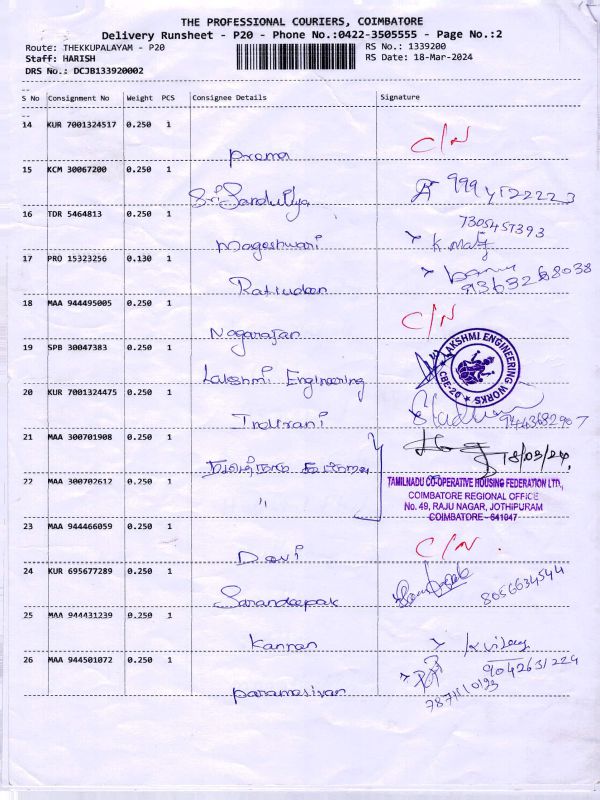 THE PROFESSIONAL COURIERS, COIMBATORE
Delivery Runsheet - P20 - Phone No.:0422-3505555 - Page No.:2
Route: THEKKUPALAYAM - P20
RS No.: 1339200
Staff: HARISH
RS Date: 18-Mar-2024
DRS No.: DCJB133920002
S No Consignment No Weight PCS Consignee Details Signature
14 KUR 7001324517 0.250 1
Prema C/N
15 KCM 30067200 0.250 1
Sri
16 TDR 5464813 0.250 1
7305457393
Mageshwari
17 PRO 15323256 0.130 1
9363268038
18 MAA 944495005 0.250 1
C/N
Nagarajan
19 SPB 30047383 0.250 1
LAKSHMI ENGINEERING WORKS CBE-20
Lakshmi Engineering
20 KUR 7001324475 0.250 1
Indirani
21 MAA 300701908 0.250 1
18/03/24
22 MAA 300702612 0.250 1
TAMILNADU CO-OPERATIVE HOUSING FEDERATION LTD.,
COIMBATORE REGIONAL OFFICE
No. 49, RAJU NAGAR, JOTHIPURAM
COIMBATORE - 641047
"
23 MAA 944466059 0.250 1
C/N.
Devi
24 KUR 695677289 0.250 1
Sarandeepak 8056634544
25 MAA 944431239 0.250 1
Kannan
26 MAA 944501072 0.250 1
Paramasivan